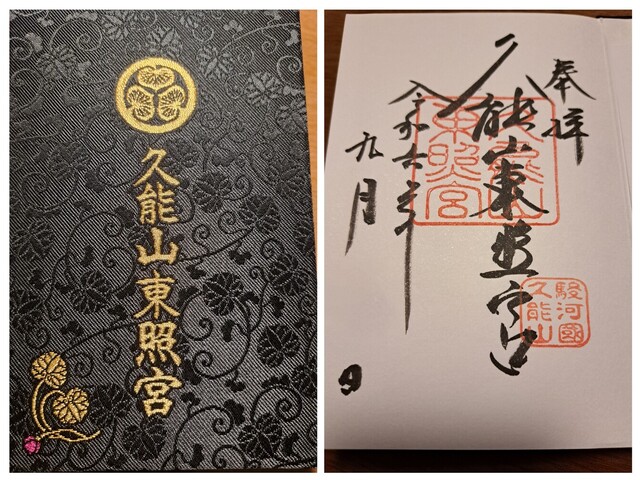 久能山東照宮
奉拝
久能山東照宮
令和六年
九月
日
久能山
東照宮
駿河國
久能山